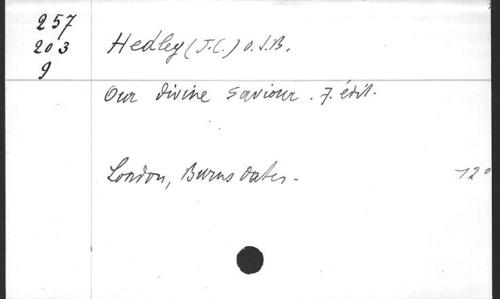 257
203
9
Hedley (J.C.) O.S.B.
Our divine saviour. 7. édit.
London, Burns Oates - 12°